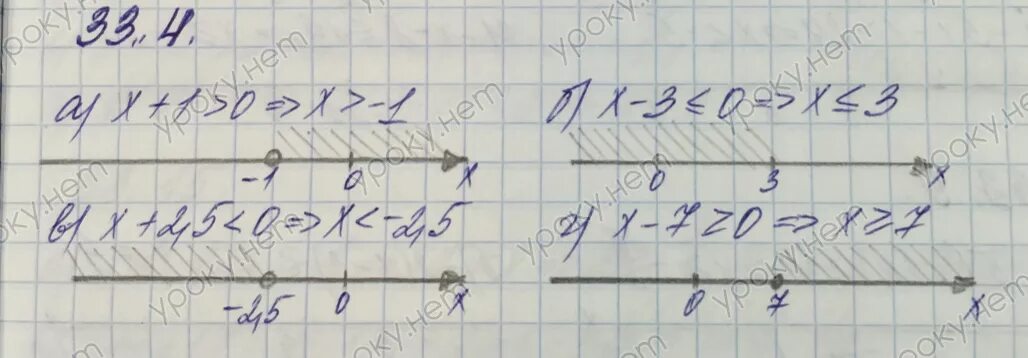 33.4.
а) x+1>0 => x>-1
-1 0 x
б) x-3≤0 => x≤3
0 3 x
в) x+2,5<0 => x<-2,5
-2,5 0 x
г) x-7≥0 => x≥7
0 7 x
уроку.нет
уроку.нет
уроку.нет
уроку.нет
уроку.нет
уроку.нет
уроку.нет
уроку.нет
уроку.нет
уроку.нет